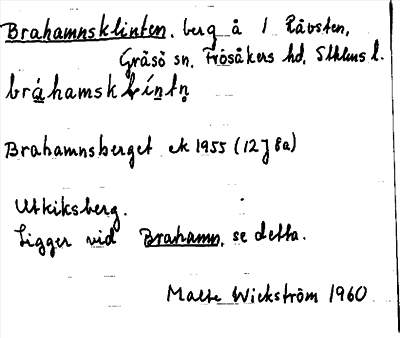 Brahamnsklinten, berg å 1 Rävsten,
Gräsö sn, Frösåkers hd, Sthlms l.
bráhamsklìntn̥
Brahamnsberget ek 1955 (12J8a)
Utkiksberg.
Ligger vid Brahamn, se detta.
Malte Wickström 1960